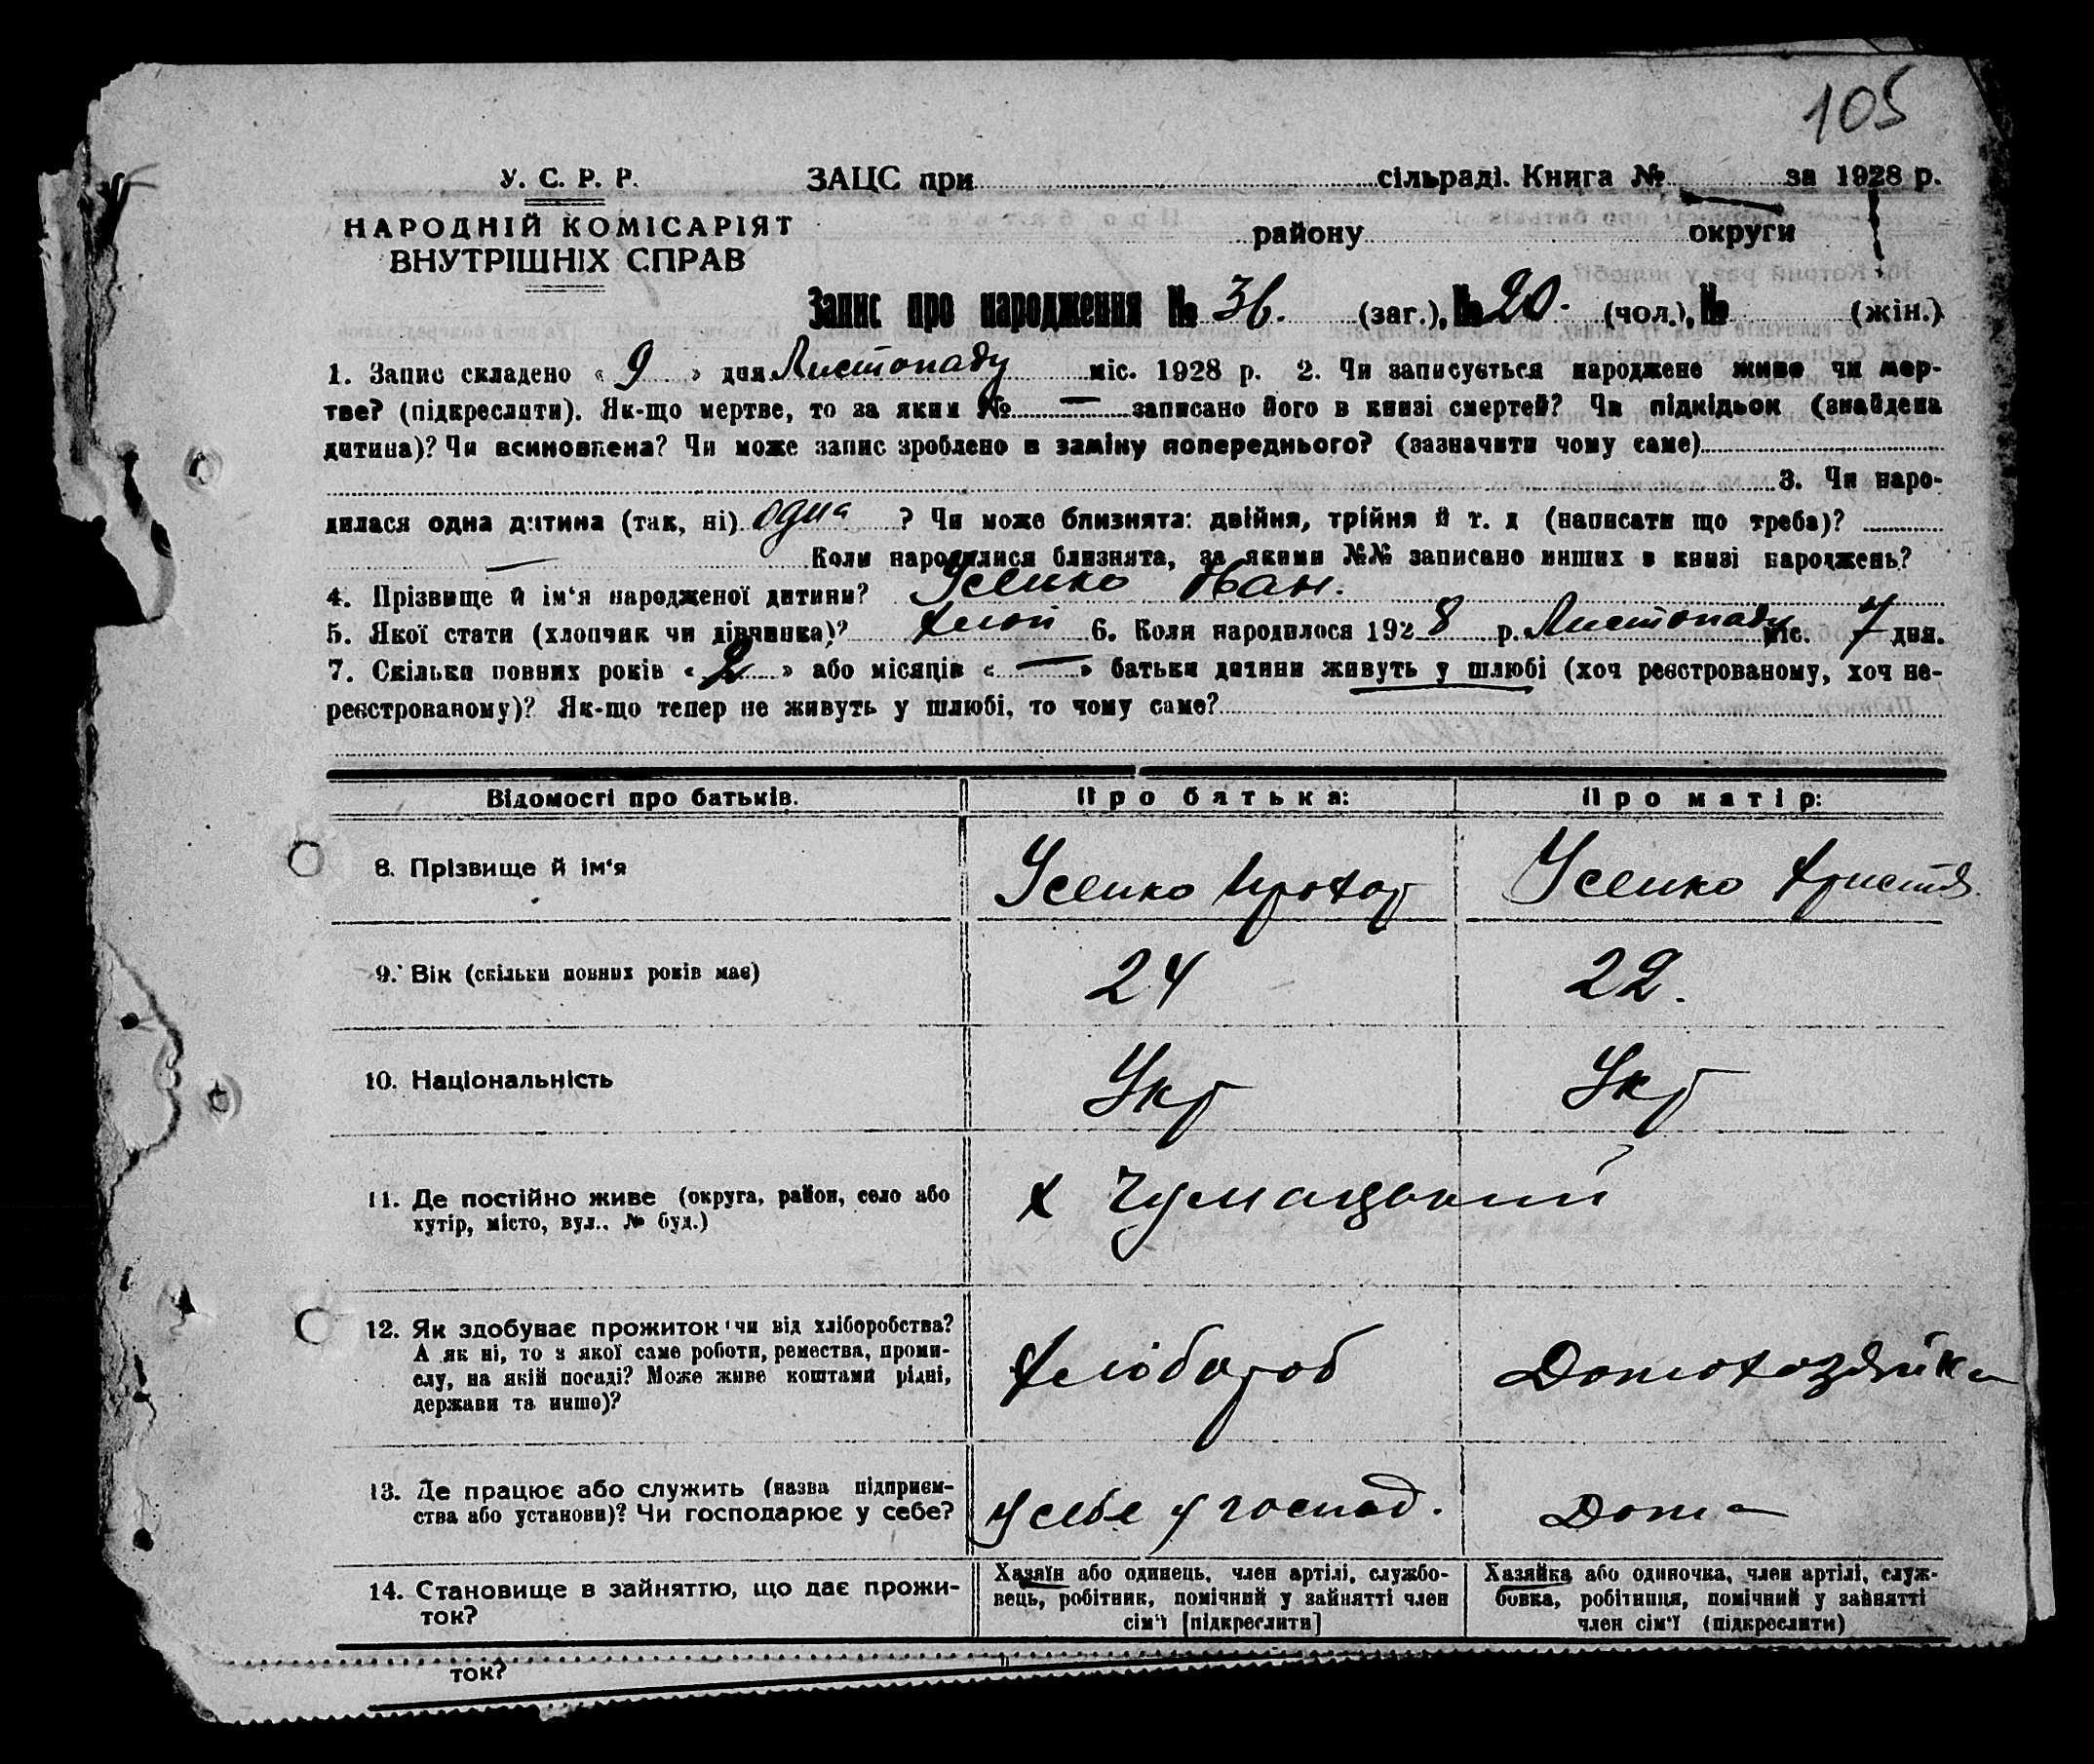 105
У. С. Р. Р. ЗАЦС при сільраді. Книга № за 1928 р.
НАРОДНІЙ КОМІСАРІЯТ
ВНУТРІШНІХ СПРАВ
району округи
Запис про народження № 36. (заг.), № 20. (чол.), № (жін.)
1. Запис складено « 9 » дня Листопаду міс. 1928 р. 2. Чи записується народжене живе чи мер-
тве? (підкреслити). Як-що мертве, то за яким № — записано його в книзі смертей? Чи підкідьок (знайдена
дитина)? Чи всиновлена? Чи може запис зроблено в заміну попереднього? (зазначити чому саме)
3. Чи наро-
дилася одна дитина (так, ні) одна ? Чи може близнята: двійня, трійня й т. д (написати що треба)?
— Коли народилися близнята, за якими №№ записано инших в книзі народжень?
4. Прізвище й ім'я народженої дитини? Усенко Иван.
5. Якої стати (хлопчик чи дівчинка)? хлоп 6. Коли народилося 1928 р. Листопаду міс. 7 дня.
7. Скільки повних років « 2 » або місяців « — » батьки дитини живуть у шлюбі (хоч реєстрованому, хоч не-
реєстрованому)? Як-що тепер не живуть у шлюбі, то чому саме?
Відомості про батьків. Про батька: Про матір:
8. Прізвище й ім'я Усенко Прохор Усенко Христя
9. Вік (скільки повних років має) 24 22.
10. Національність Укр Укр
11. Де постійно живе (округа, район, село або
хутір, місто, вул.. № буд.)
х Чумацький
12. Як здобуває прожиток чи від хліборобства?
А як ні, то з якої саме роботи, ремества, проми-
слу, на якій посаді? Може живе коштами рідні,
держави та инше)?
хлібороб Домохозяйка
13. Де працює або служить (назва підприєм-
ства або установи)? Чи господарює у себе?
у себе у господ. Дома
14. Становище в зайняттю, що дає прожи-
ток?
Хазяїн або одинець, член артілі, службо-
вець, робітник, помічний у зайнятті член
сім'ї [підкреслити]
Хазяйка або одиночка, член артілі, служ-
бовка, робітниця, помічний у зайнятті
член сім'ї (підкреслити)
ток?